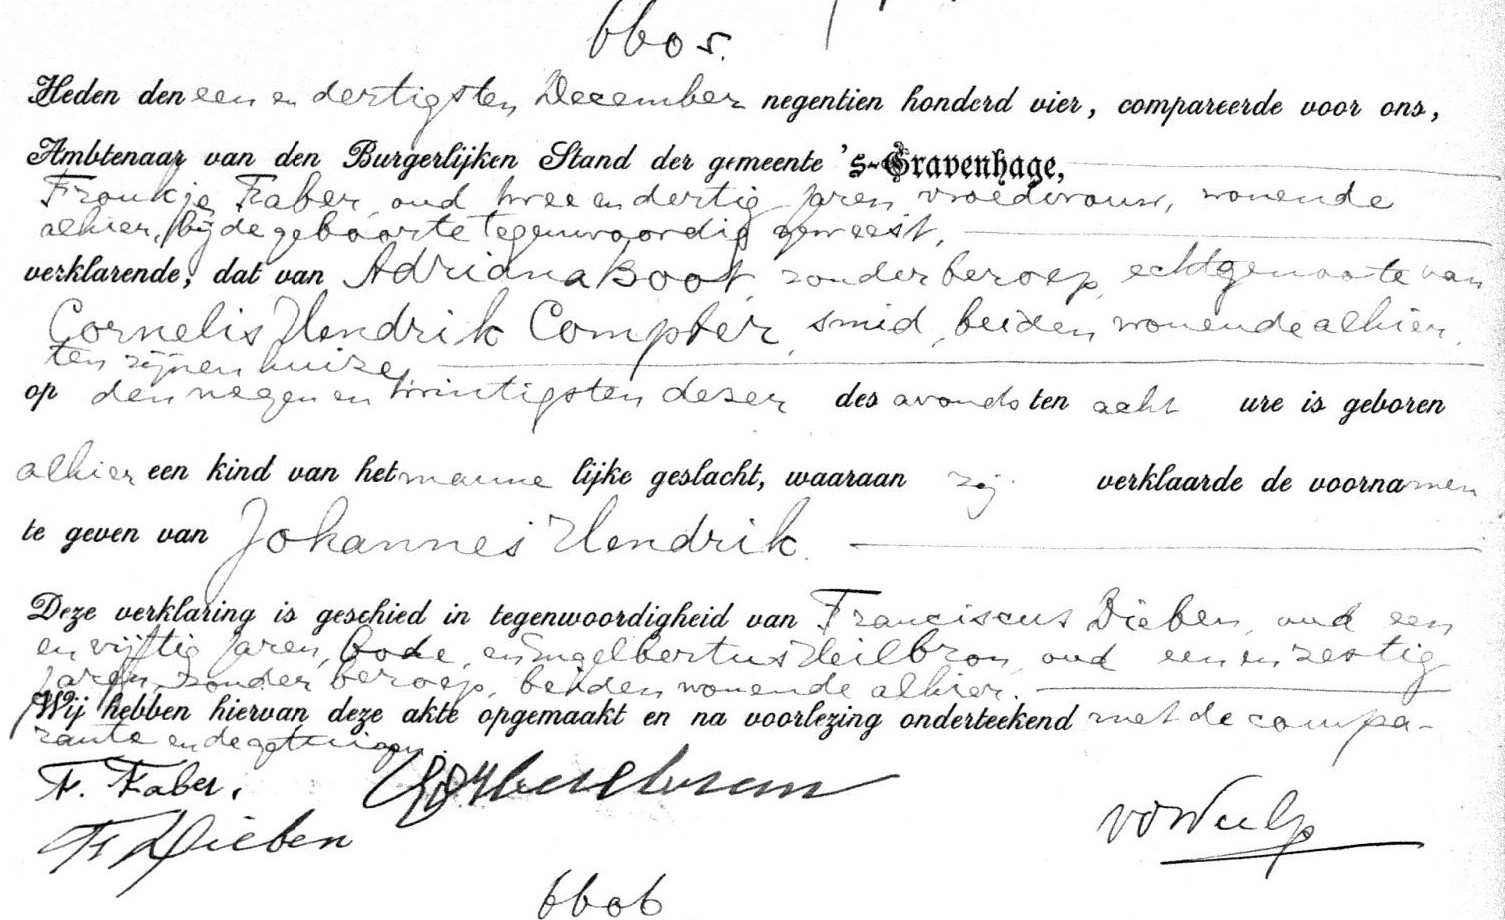 6605.
Heden den een en dertigsten December negentien honderd vier, compareerde voor ons,
Ambtenaar van den Burgerlijken Stand der gemeente 's-Gravenhage,
Froukje Faber, oud twee en dertig jaren vroedvrouw, wonende
alhier, bij de geboorte tegenwoordig geweest,
verklarende, dat van Adriana Boot, zonder beroep, echtgenoote van
Cornelis Hendrik Compter, smid, beiden wonende alhier,
ten zijnen huize,
op den negen en twintigsten dezer des avonds ten acht ure is geboren
alhier een kind van het manne lijke geslacht, waaraan zij verklaarde de voornamen
te geven van Johannes Hendrik.
Deze verklaring is geschied in tegenwoordigheid van Franciscus Dieben, oud een
en vijftig jaren, bode, en Engelbertus Heilbron, oud een en zestig
jaren, zonder beroep, beiden wonende alhier.
Wij hebben hiervan deze akte opgemaakt en na voorlezing onderteekend met de compa-
rante en de getuigen.
F. Faber.
F Dieben
vd Wulp
6606